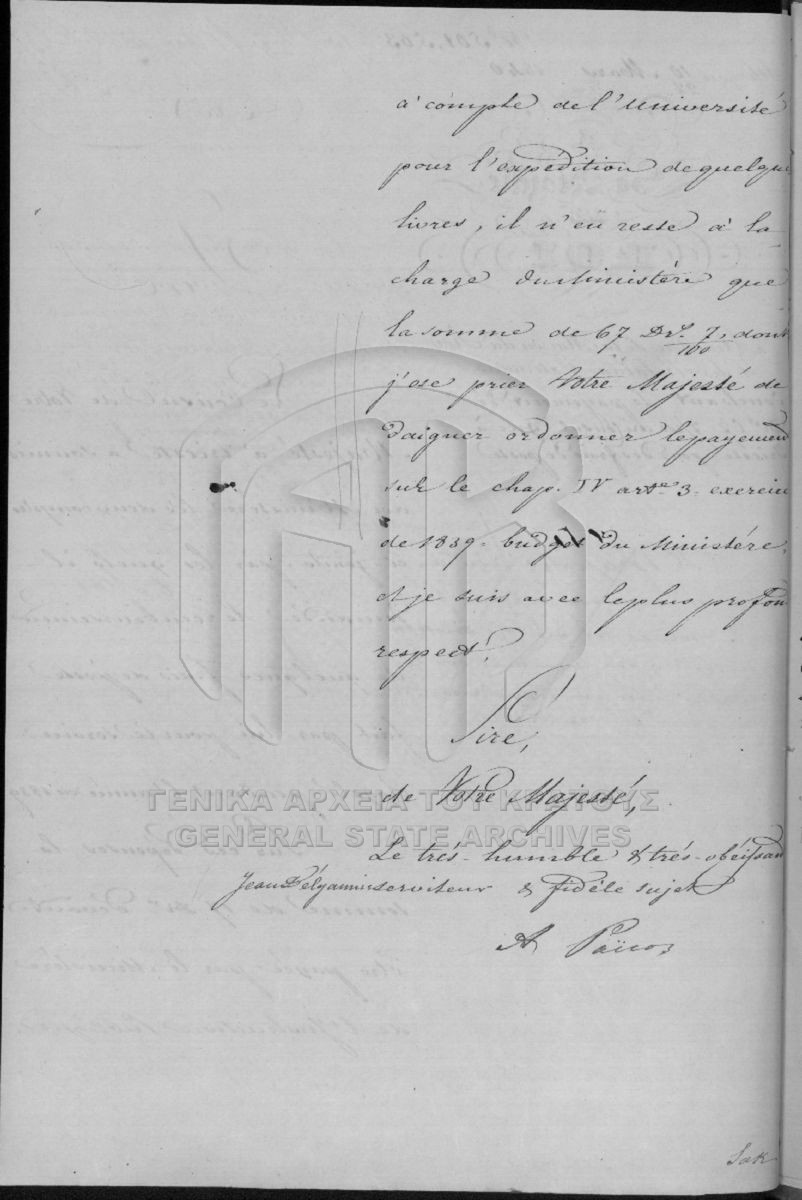 à compte de l'université
pour l'expédition de quelque
livres, il n'en reste à la
charge du Ministère que
la somme de 67 Drs. 7/100, dont
j'ose prier Votre Majesté de
daigner ordonner le payement
sur le chap. IV artle 3. exercice
de 1839. budget du Ministère,
et je suis avec le plus profond
respect,
Sire,
de Votre Majesté,
ΓΕΝΙΚΑ ΑΡΧΕΙΑ ΤΟΥ ΚΡΑΤΟΥΣ
GENERAL STATE ARCHIVES
Le très-humble & très-obéissant
Jean Délyannis serviteur & fidèle sujet
A Païcos